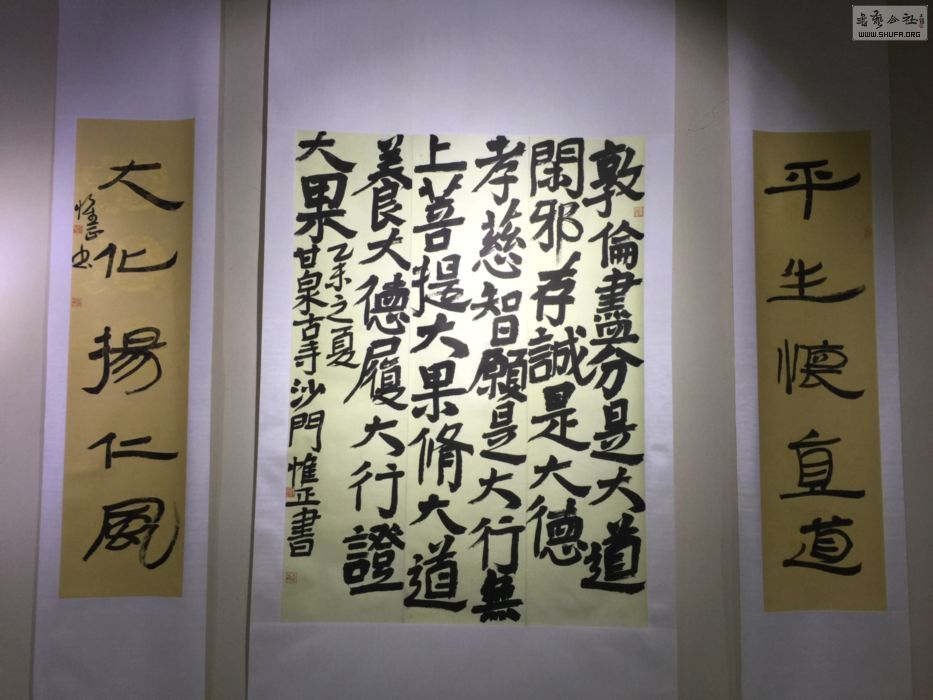 平生懷直道
敦倫盡分是大道
閑邪存誠是大德
孝慈智願是大行無
上菩提大果脩大道
養大德履大行證
大果
乙未之夏
甘泉古寺沙門惟正書
大化揚仁風
惟正書
書藝公社
WWW.SHUFA.ORG